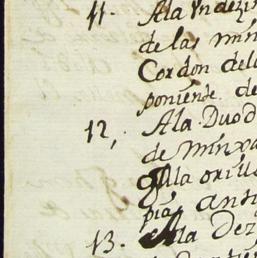 11. A la Undezi
de las min
Cordon del
poniente. de
12, A la Duod
de mina
a la orilla
pia, anti
13. A la Dez